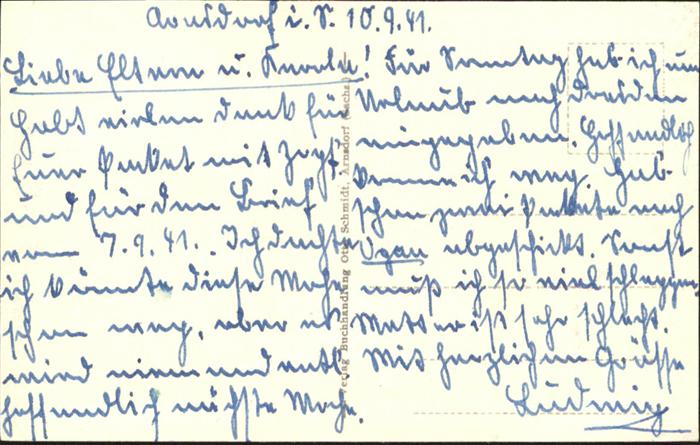 Arnsdorf i. S. 10.9.41.
Liebe Eltern u.
Habt vielen Dank für
Euer Packet mit
und für den Brief
vom 7.9.41. Ich dachte
ich könnte diese Woche
schon weg, aber es
wird niemand entl.
hoffendlich nächste Woche.
Für Sonntag hab ich um
Urlaub nach Dresden
eingegeben. Hoffendlich
komme ich weg. Hab
schon zwei Packete nach
abgeschickt. Sonst
muß ich so viel schleppen
Wetter ist sehr schlecht.
Mit herzlichen Grüsse
Ludwig
Verlag Buchhandlung Otto Schmidt, Arnsdorf (Sachs.)